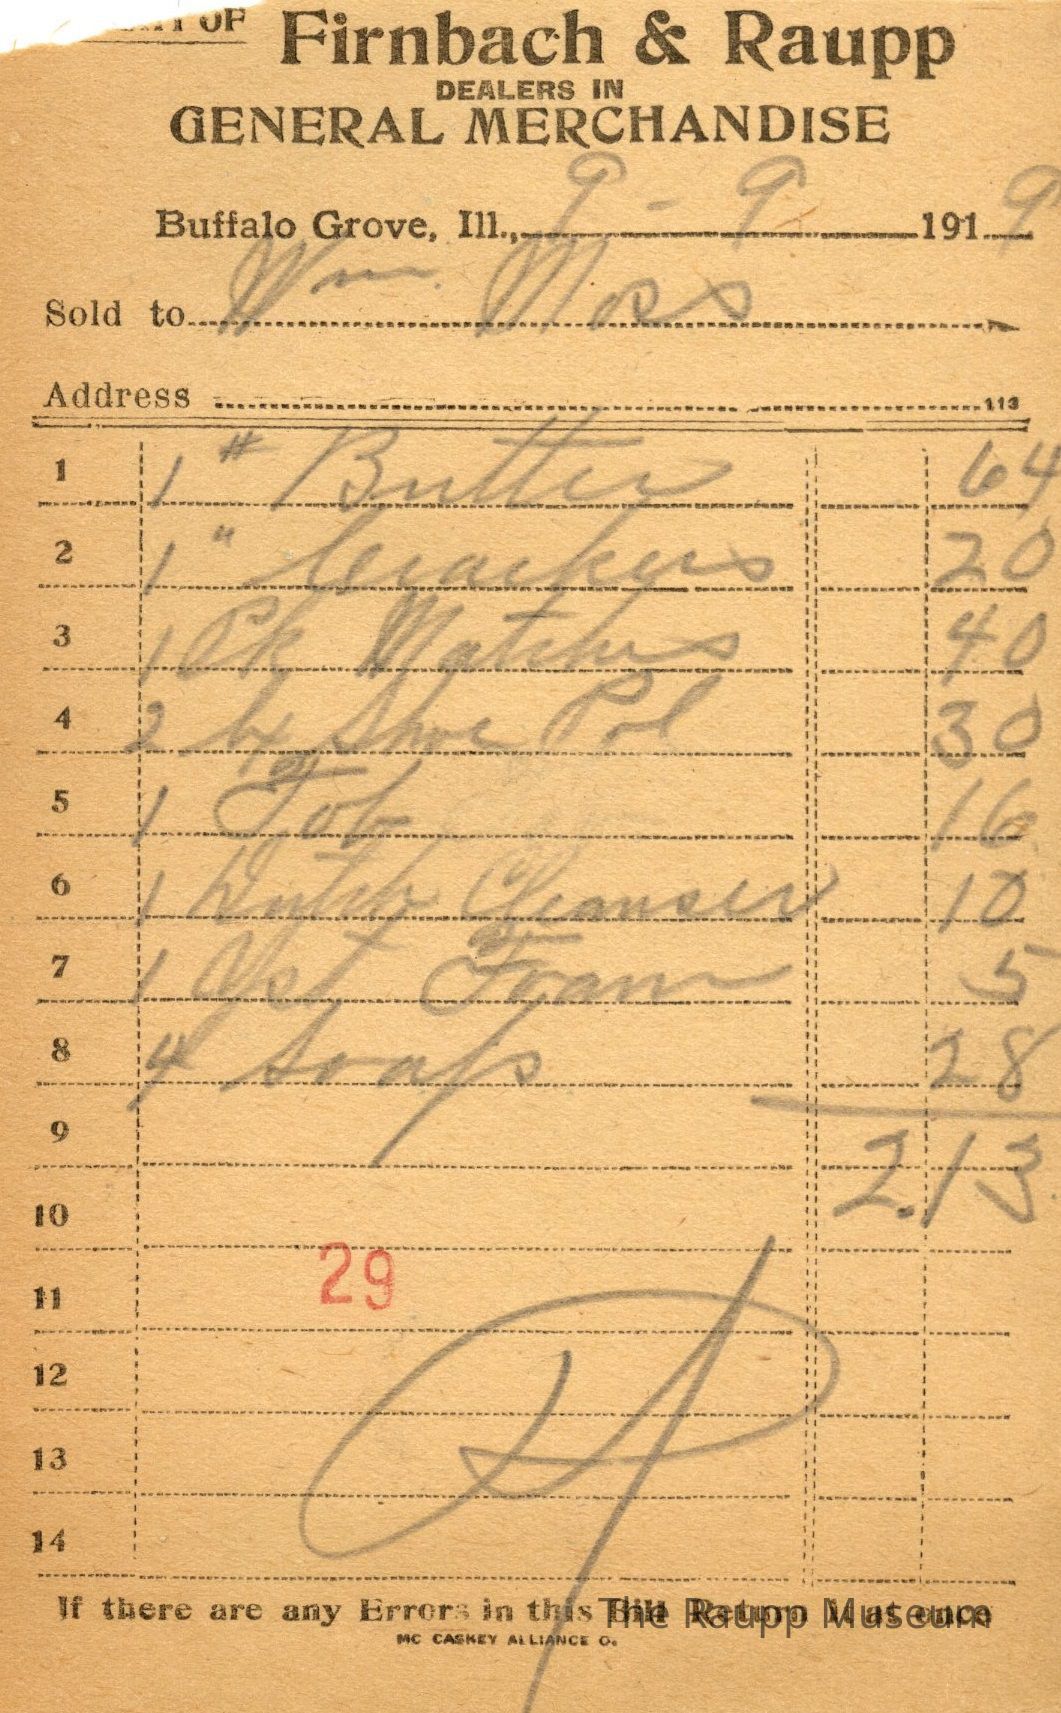 OF
Firnbach & Raupp
DEALERS IN
GENERAL MERCHANDISE
Buffalo Grove, Ill., 9 - 9 1919
Sold to Wm. Moss
Address
113
1 1 # Butter 64
2 1 " Crackers 20
3 1 Pk Matches 40
4 2 bx Shoe Pol 30
5 1 Tob 16
6 1 Dutch Cleanser 10
7 1 Yst Foam 5
8 4 Soaps 28
9 2.13
10
29
11
12
13
14
If there are any Errors in this Bill Return it at once
The Raupp Museum
MC CASKEY ALLIANCE O.